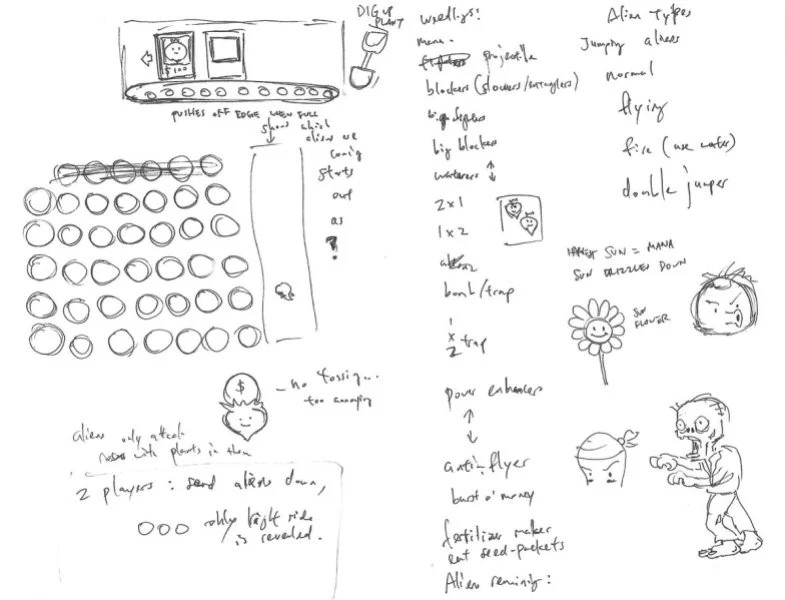 DIG UP
PLANT
$100
PUSHES OFF EDGE WHEN FULL
shows which
aliens are
coming
starts
out
as
?
$
- no tossing...
too annoying
aliens only attack
rows with plants in them
2 players: send aliens down,
only right side
is revealed.
Weedlings:
mana -
projectile
blockers (slowers/entanglers)
big fighters
big blockers
waterers
2x1
1x2
bomb/trap
1
x
2 trap
power enhancers
anti-flyer
burst o' money
fertilizer maker
eat seed-packets
Alien reminly:
Alien Types
Jumping aliens
normal
flying
fire (use water)
double jumper
HARVEST SUN = MANA
SUN DRIZZLES DOWN
SUN
FLOWER